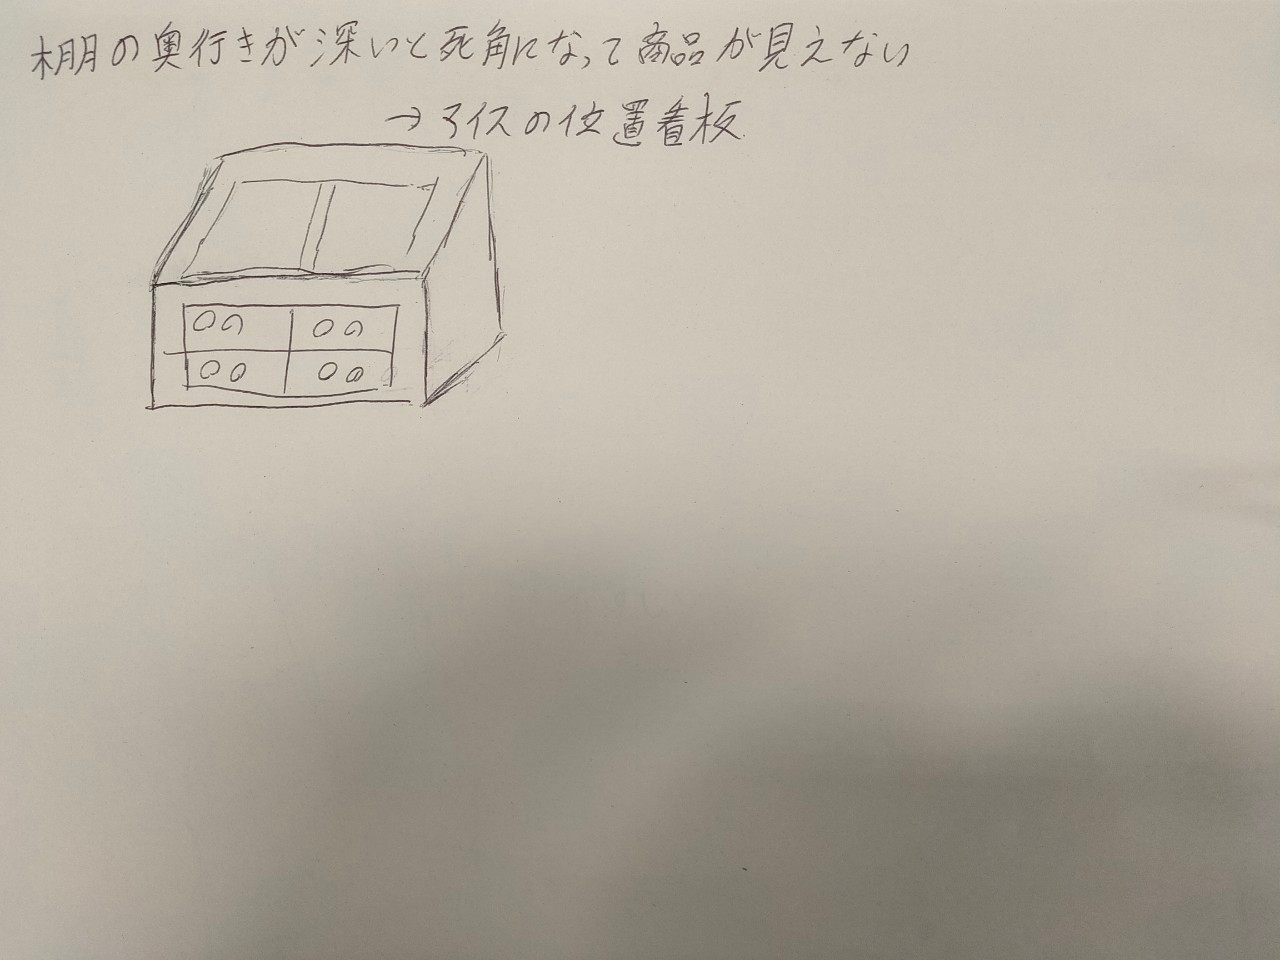 棚の奥行きが深いと死角になって商品が見えない
→アイスの位置看板